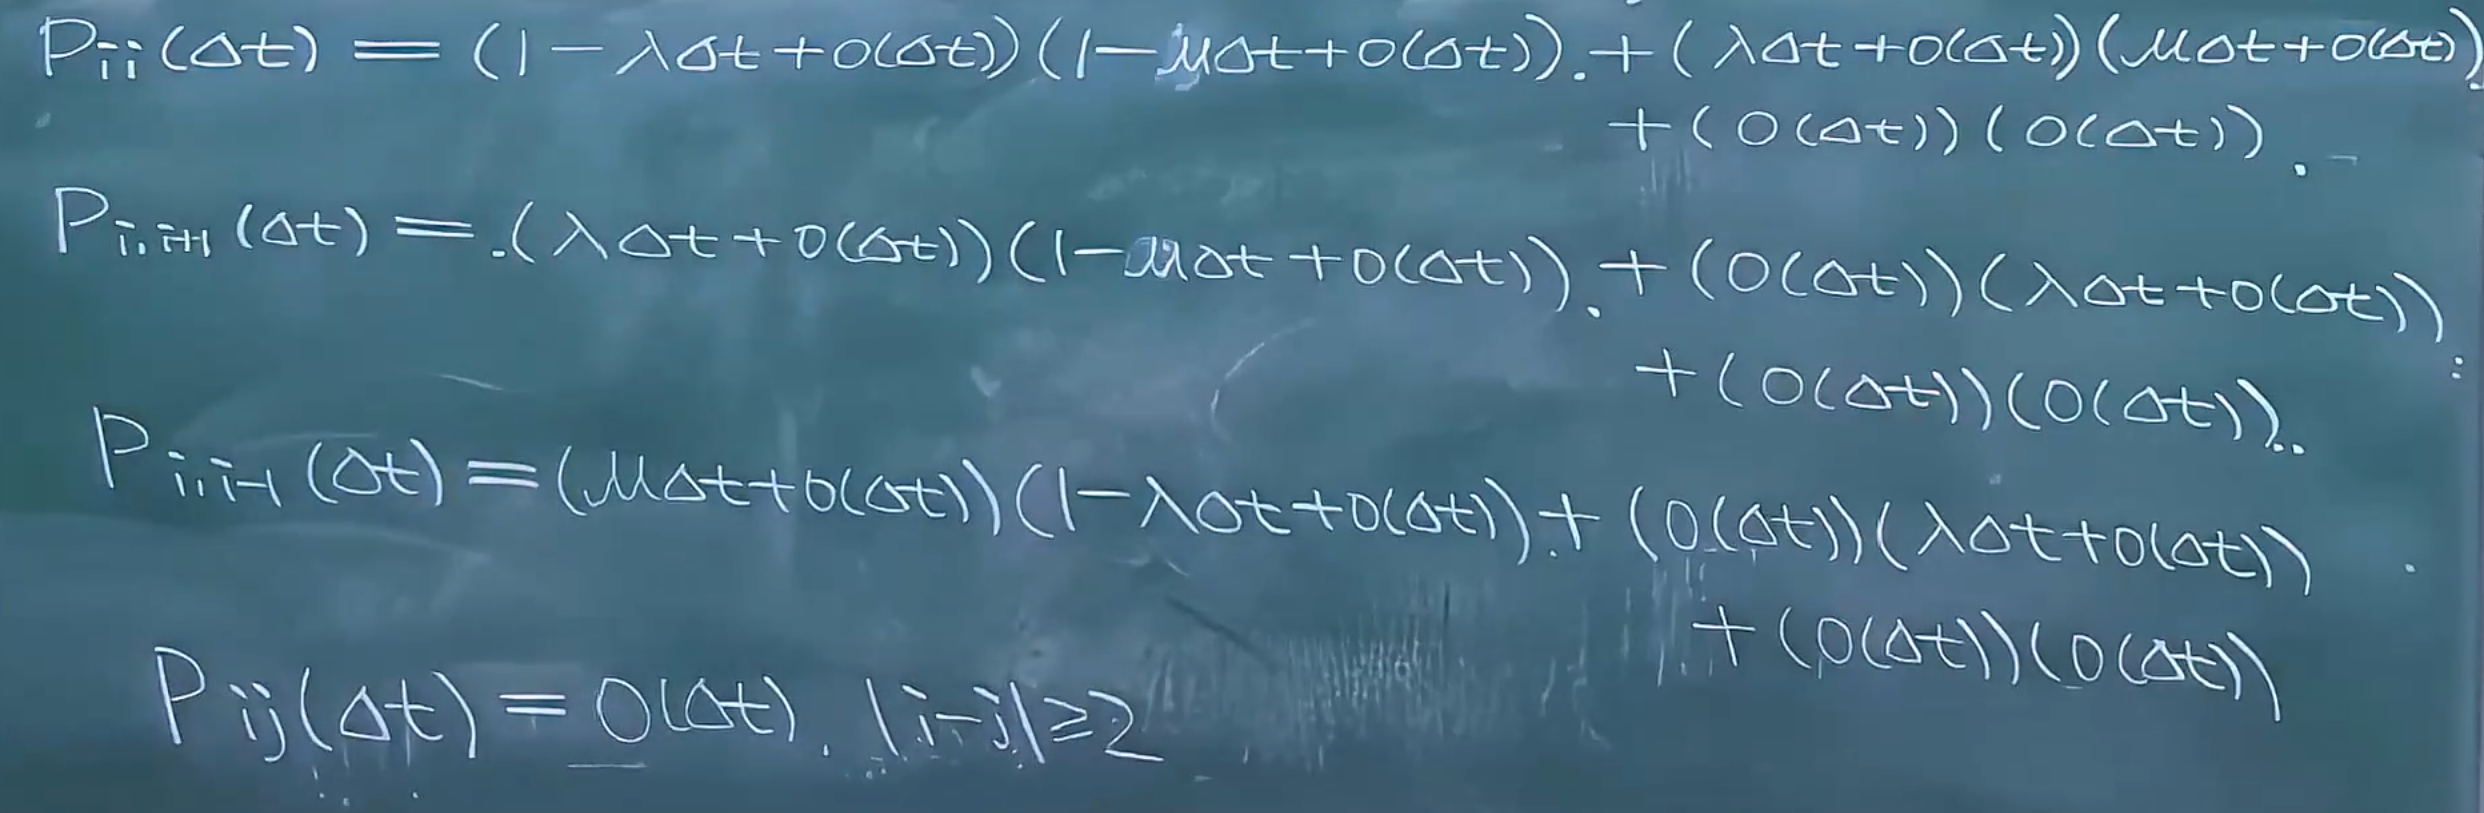 Pii(Δt) = (1-λΔt+o(Δt))(1-μΔt+o(Δt)).+(λΔt+o(Δt))(μΔt+o(Δt))
+(o(Δt))(o(Δt)).
Pi,i+1(Δt) = .(λΔt+o(Δt))(1-μΔt+o(Δt)).+(o(Δt))(λΔt+o(Δt))
+(o(Δt))(o(Δt))..
Pi,i-1(Δt) = (μΔt+o(Δt))(1-λΔt+o(Δt)).+(o(Δt))(λΔt+o(Δt))
+(o(Δt))(o(Δt))
Pij(Δt) = o(Δt), |i-j|≥2